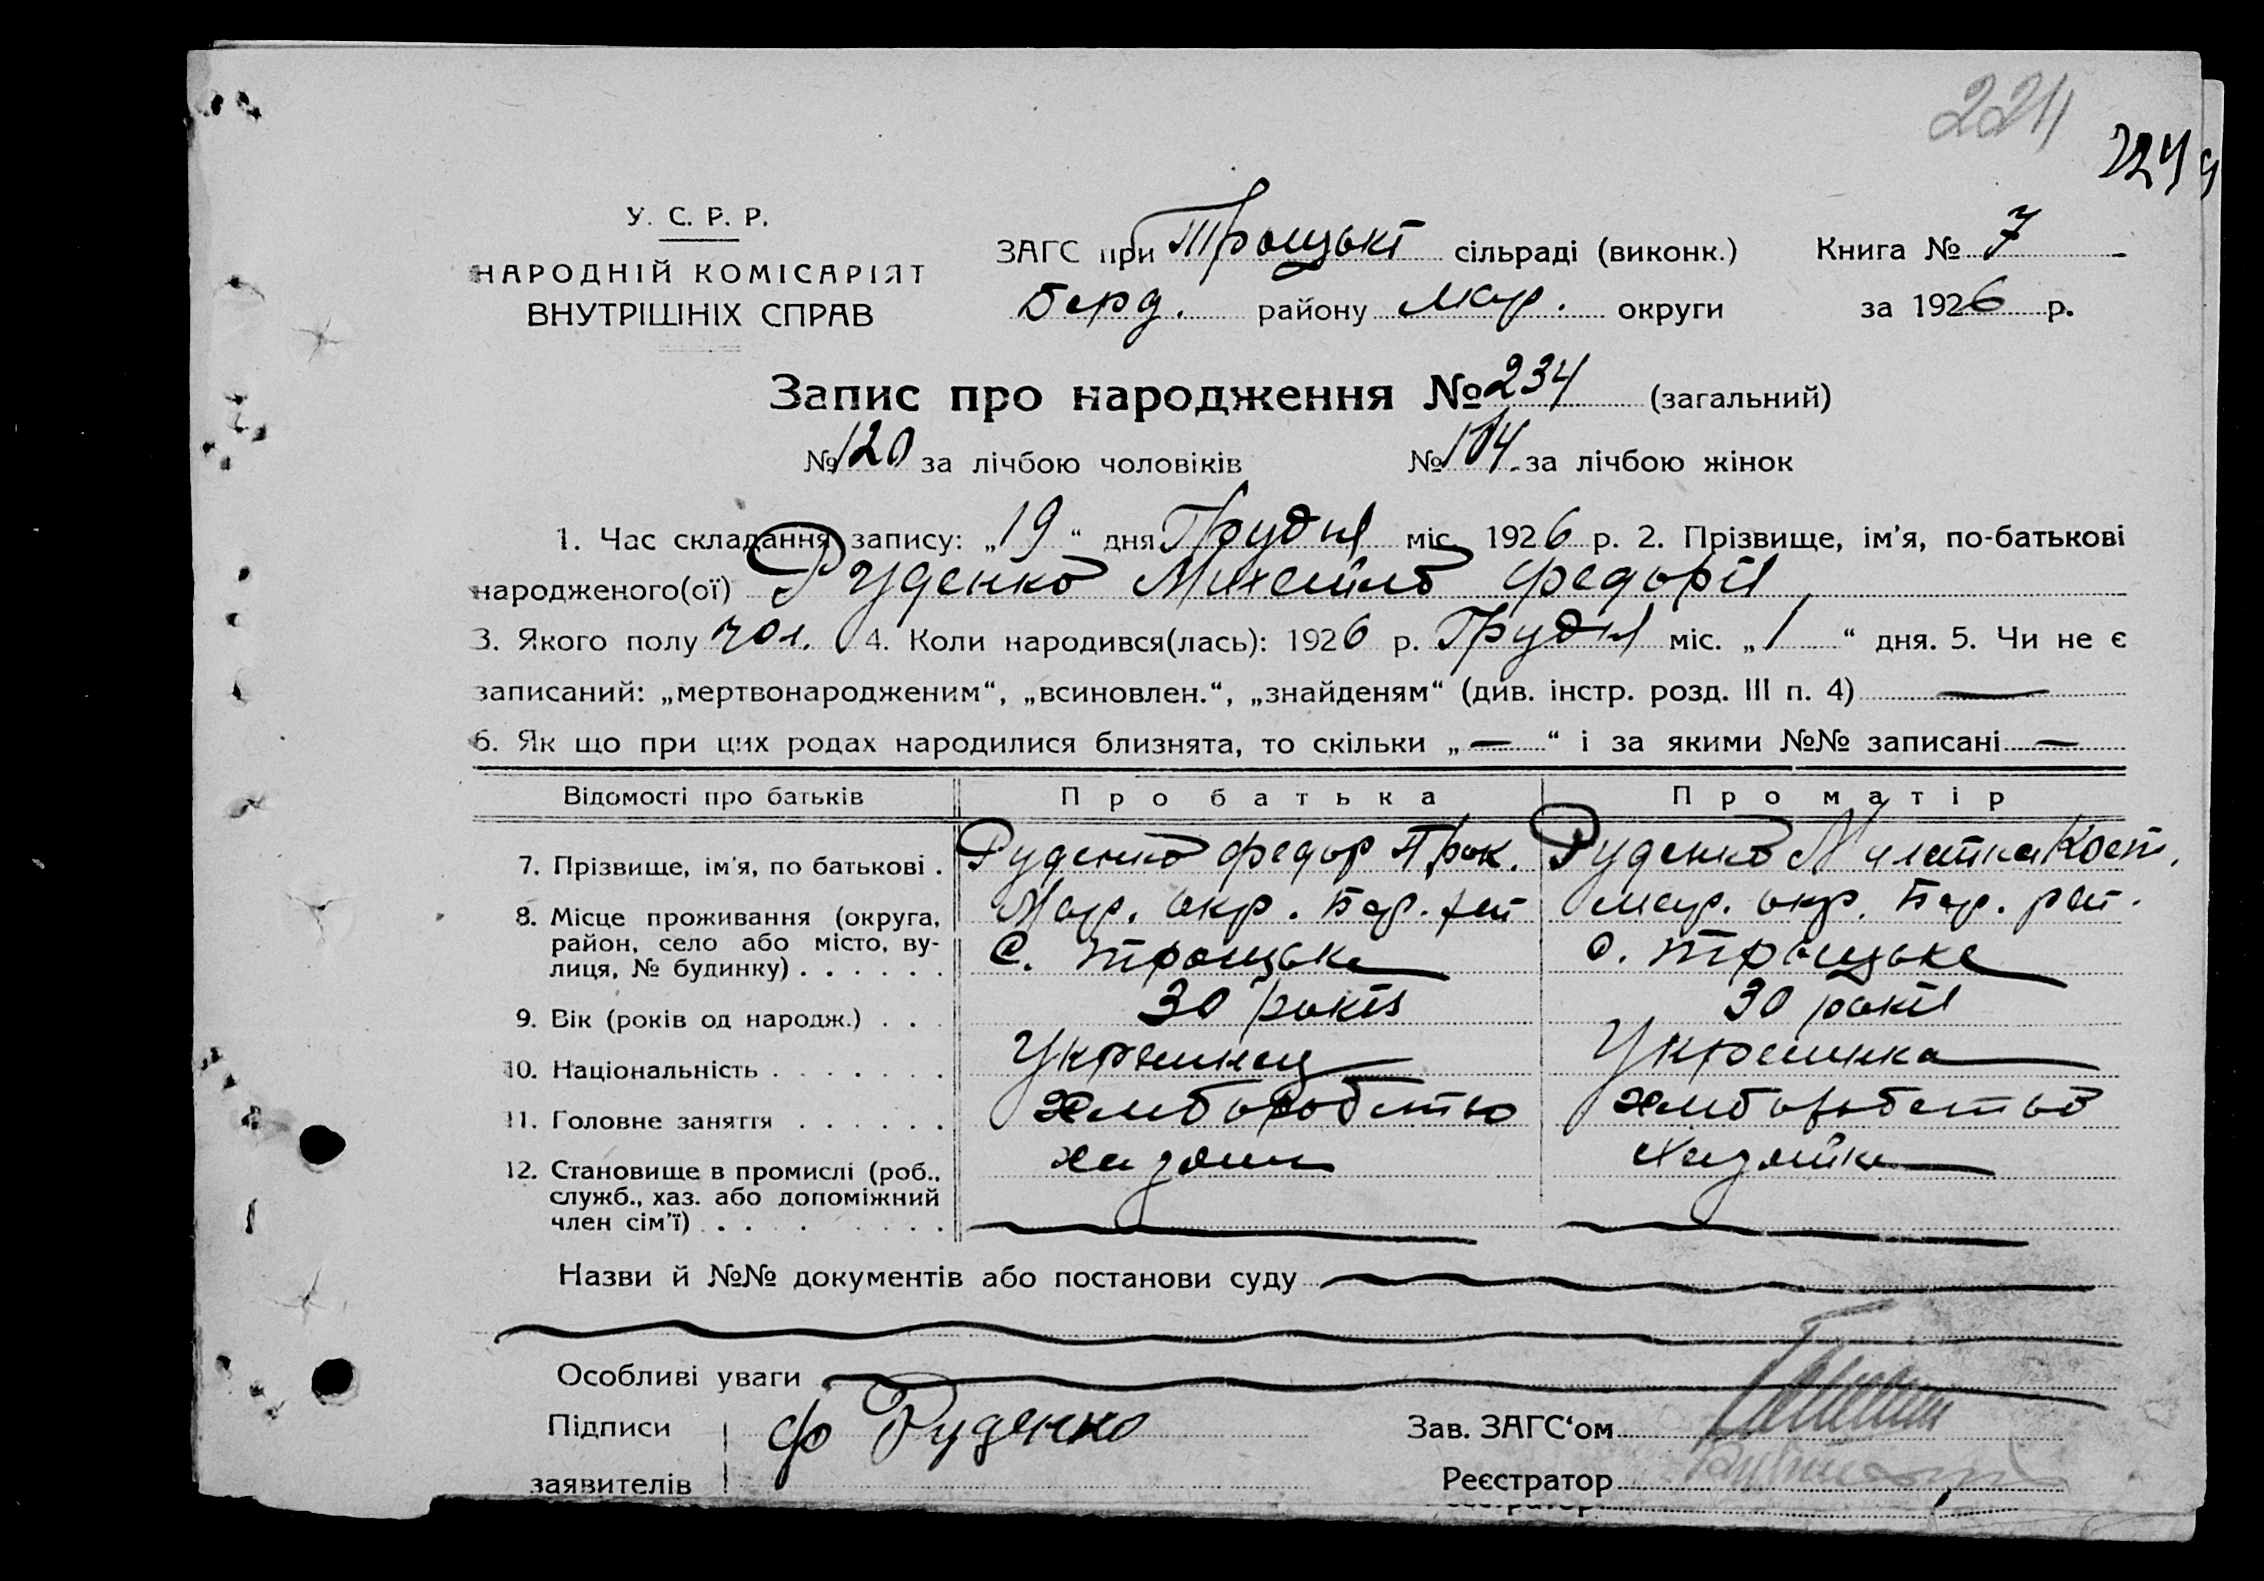 224
224
У. С. Р. Р.
НАРОДНІЙ КОМІСАРІЯТ
ВНУТРІШНІХ СПРАВ
ЗАГС при Троцькі сільраді (виконк.) Книга № 7
Берд. району Мар. округи за 1926 р.
Запис про народження № 234 (загальний)
№ 120 за лічбою чоловіків № 114 за лічбою жінок
1. Час складання запису: „19“ дня Грудня міс. 1926 р. 2. Прізвище, ім’я, по-батькові
народженого(ої) Руденко Михейло Федорів
3. Якого полу чол. 4. Коли народився(лась): 1926 р. Грудня міс. „1“ дня. 5. Чи не є
записаний: „мертвонародженим“, „всиновлен.“, „знайденям“ (див. інстр. розд. III п. 4) —
6. Як що при цих родах народилися близнята, то скільки „—“ і за якими №№ записані —
Відомості про батьків Про батька Про матір
7. Прізвище, ім’я, по батькові . Руденко Федор Прок. Руденко Кост.
8. Місце проживання (округа, Мар. окр. Бер. рай Мар. окр. Бер. рай.
район, село або місто, ву-
лиця, № будинку) . . . . . . с. Троцьке с. Троцьке
9. Вік (років од народж.) . . . 30 років 30 років
10. Національність . . . . . . . Украинец Украинка
11. Головне заняття . . . . . . Хлиборобство хлиборобство
12. Становище в промислі (роб., хазоин хазяйка
служб., хаз. або допоміжний
член сім’ї) . . . . . . . .
Назви й №№ документів або постанови суду
Особливі уваги
Підписи Ф Руденко Зав. ЗАГС‘ом
заявителів Реєстратор